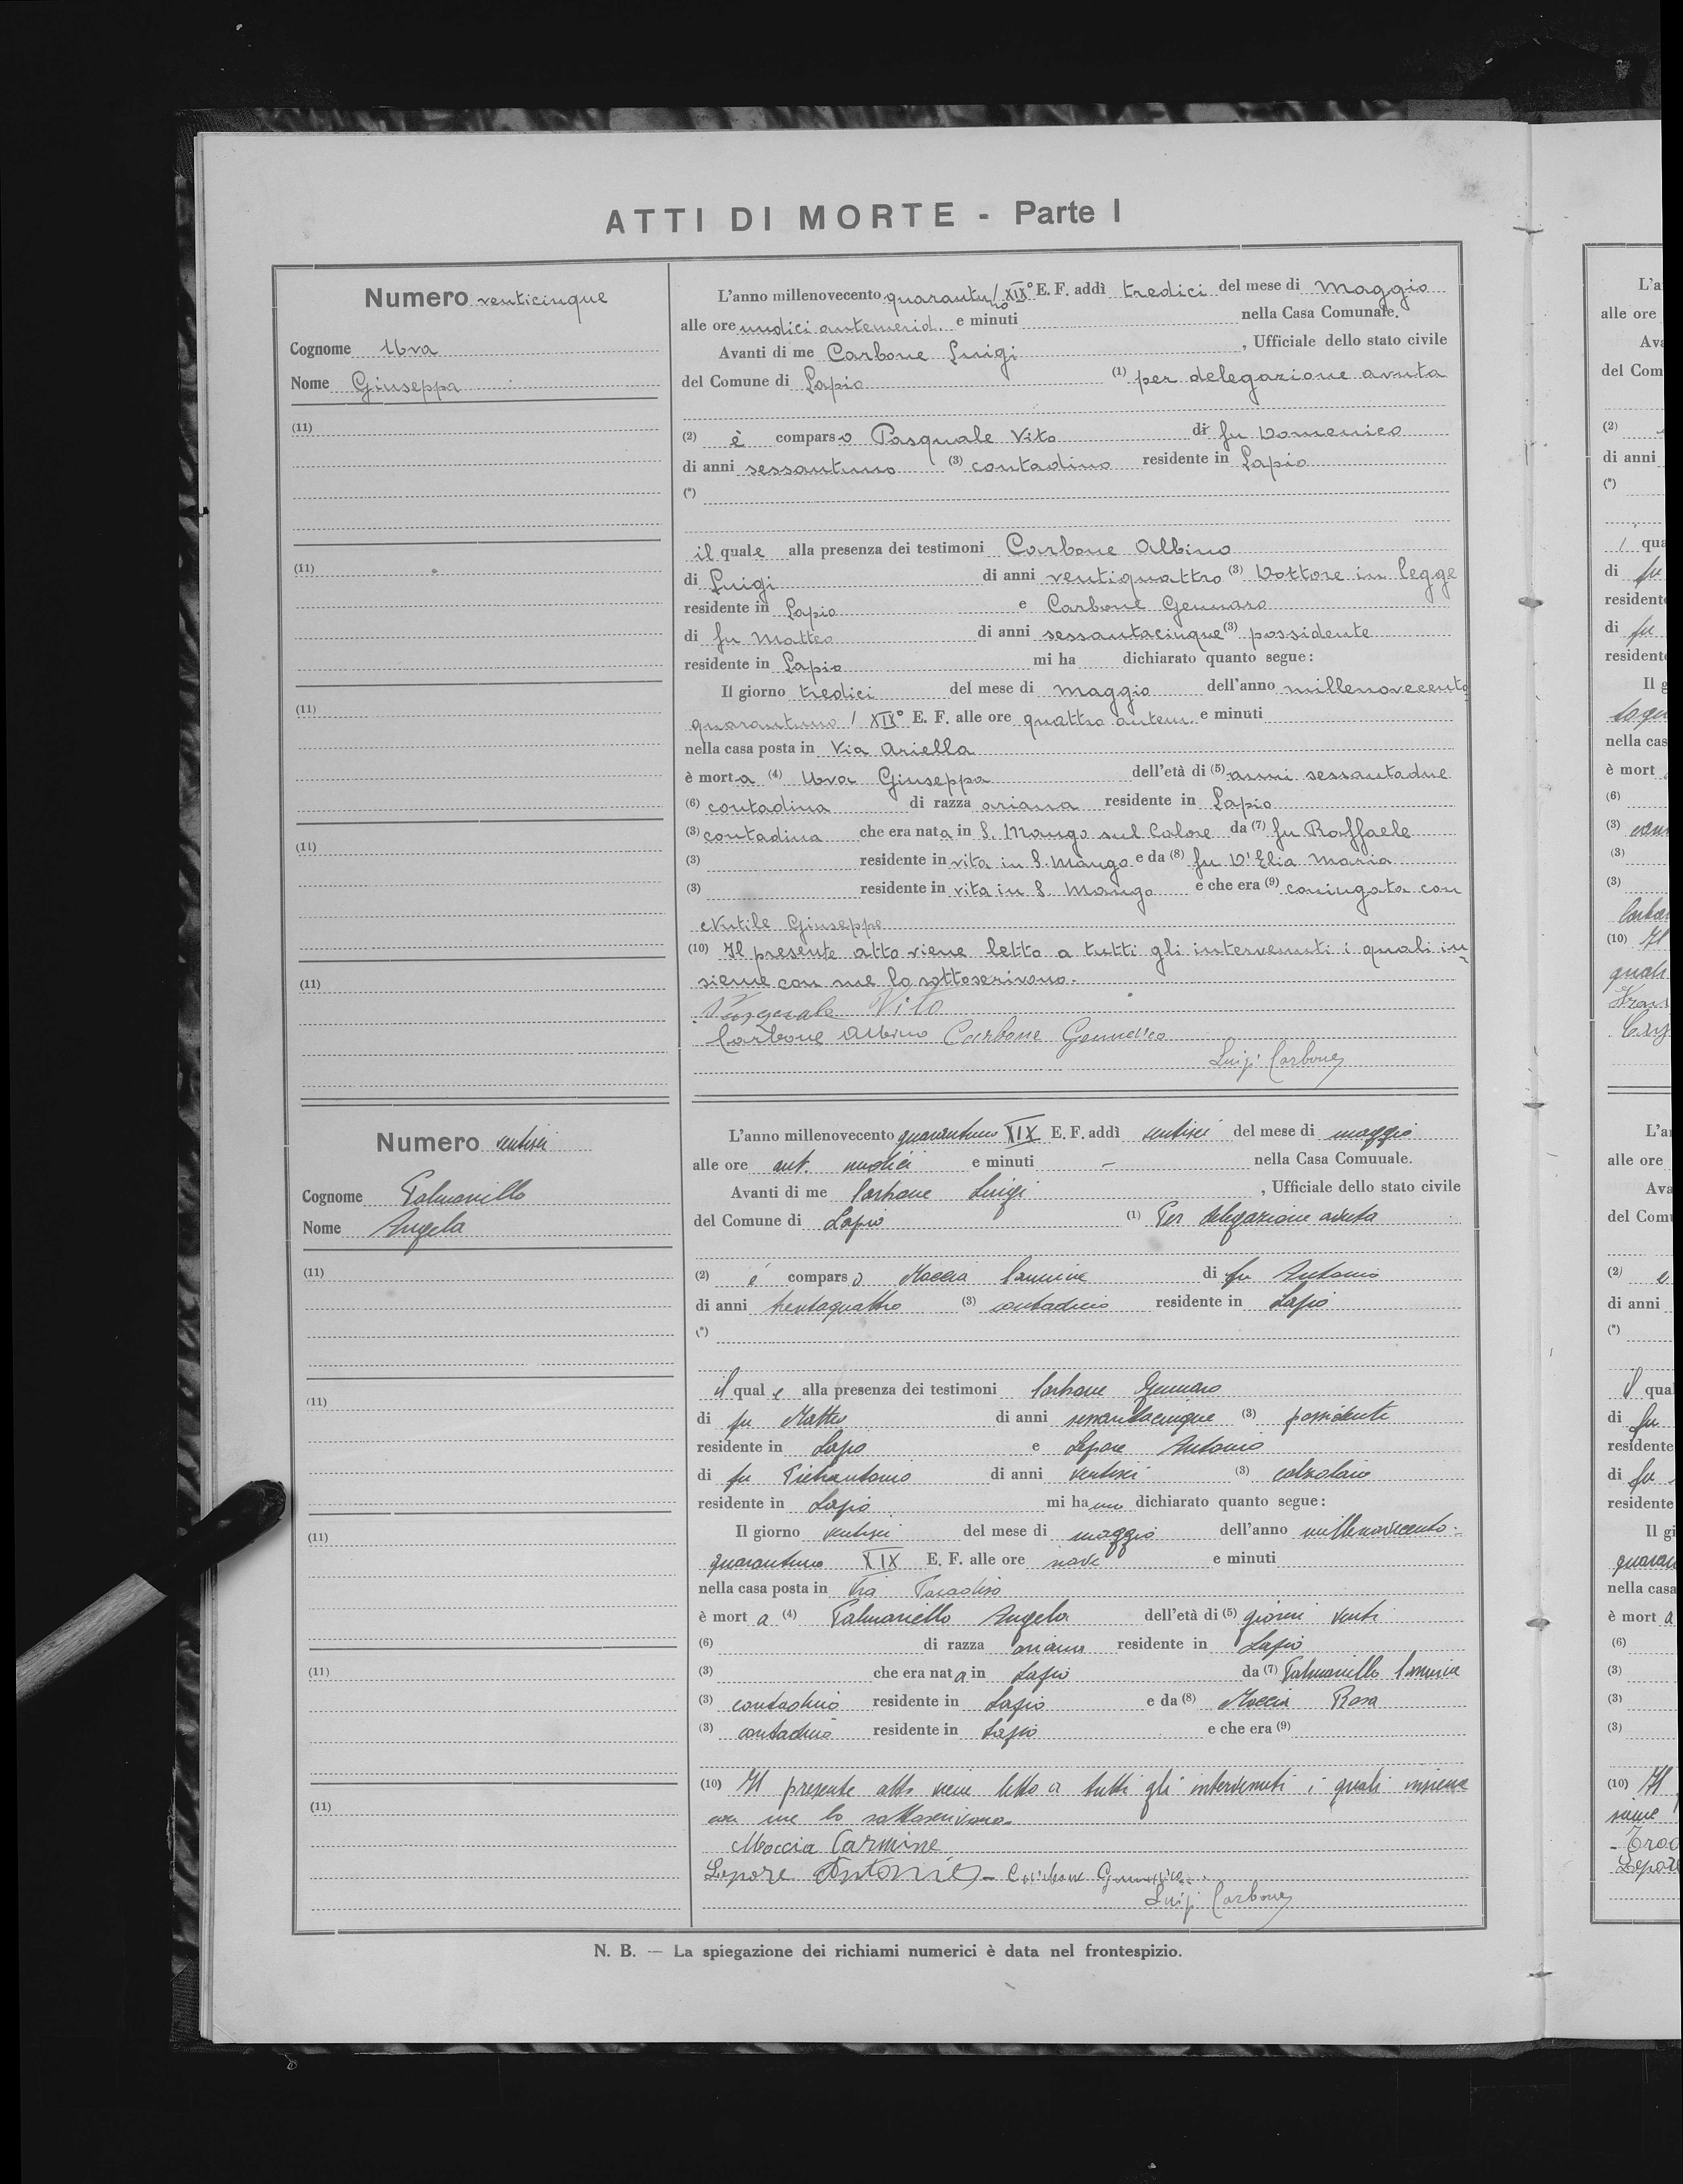 ATTI DI MORTE - Parte I
Numero venticinque
Cognome Uva
Nome Giuseppa
(11)
(11)
(11)
(11)
(11)
L'anno millenovecento quarantuno / XIX° E. F. addì tredici del mese di Maggio
alle ore undici antemerid. e minuti nella Casa Comunale.
Avanti di me Carbone Luigi, Ufficiale dello stato civile
del Comune di Lapio (1) per delegazione avuta
(2) è comparso Pasquale Vito di fu Domenico
di anni sessantuno (3) contadino residente in Lapio
(*)
il quale alla presenza dei testimoni Carbone Albino
di Luigi di anni ventiquattro (3) Dottore in legge
residente in Lapio e Carbone Gennaro
di fu Matteo di anni sessantacinque (3) possidente
residente in Lapio mi ha dichiarato quanto segue:
Il giorno tredici del mese di maggio dell'anno millenovecento
quarantuno / XIX° E. F. alle ore quattro antem. e minuti
nella casa posta in Via Ariella
è morta (4) Uva Giuseppa dell'età di (5) anni sessantadue
(6) contadina di razza ariana residente in Lapio
(3) contadina che era nata in S. Mango sul Calore da (7) fu Raffaele
(3) residente in vita in S. Mango e da (8) fu D'Elia Maria
(3) residente in vita in S. Mango e che era (9) coniugata con
Nutile Giuseppe
(10) Il presente atto viene letto a tutti gli intervenuti i quali in-
sieme con me lo sottoscrivono.
Pasquale Vito
Carbone Albino Carbone Gennaro
Luigi Carbone
Numero ventisei
Cognome Palmariello
Nome Angela
(11)
(11)
(11)
(11)
(11)
L'anno millenovecento quarantuno XIX E. F. addì ventisei del mese di maggio
alle ore ant. undici e minuti - nella Casa Comunale.
Avanti di me Carbone Luigi, Ufficiale dello stato civile
del Comune di Lapio (1) Per delegazione avuta
(2) è comparso Moccia Carmine di fu Antonio
di anni trentaquattro (3) contadino residente in Lapio
(*)
il quale alla presenza dei testimoni Carbone Gennaro
di fu Matteo di anni sessantacinque (3) possidente
residente in Lapio e Lepore Antonio
di fu Pietrantonio di anni ventisei (3) calzolaio
residente in Lapio mi hanno dichiarato quanto segue:
Il giorno ventisei del mese di maggio dell'anno millenovecento-
quarantuno XIX E. F. alle ore nove e minuti
nella casa posta in Via Paradiso
è morta (4) Palmariello Angela dell'età di (5) giorni venti
(6) di razza ariana residente in Lapio
(3) che era nata in Lapio da (7) Palmariello Carmine
(3) contadino residente in Lapio e da (8) Moccia Rosa
(3) contadina residente in Lapio e che era (9)
(10) Il presente atto viene letto a tutti gli intervenuti i quali insieme
con me lo sottoscrivono.
Moccia Carmine
Lepore Antonio - Carbone Gennaro
Luigi Carbone
N. B. — La spiegazione dei richiami numerici è data nel frontespizio.